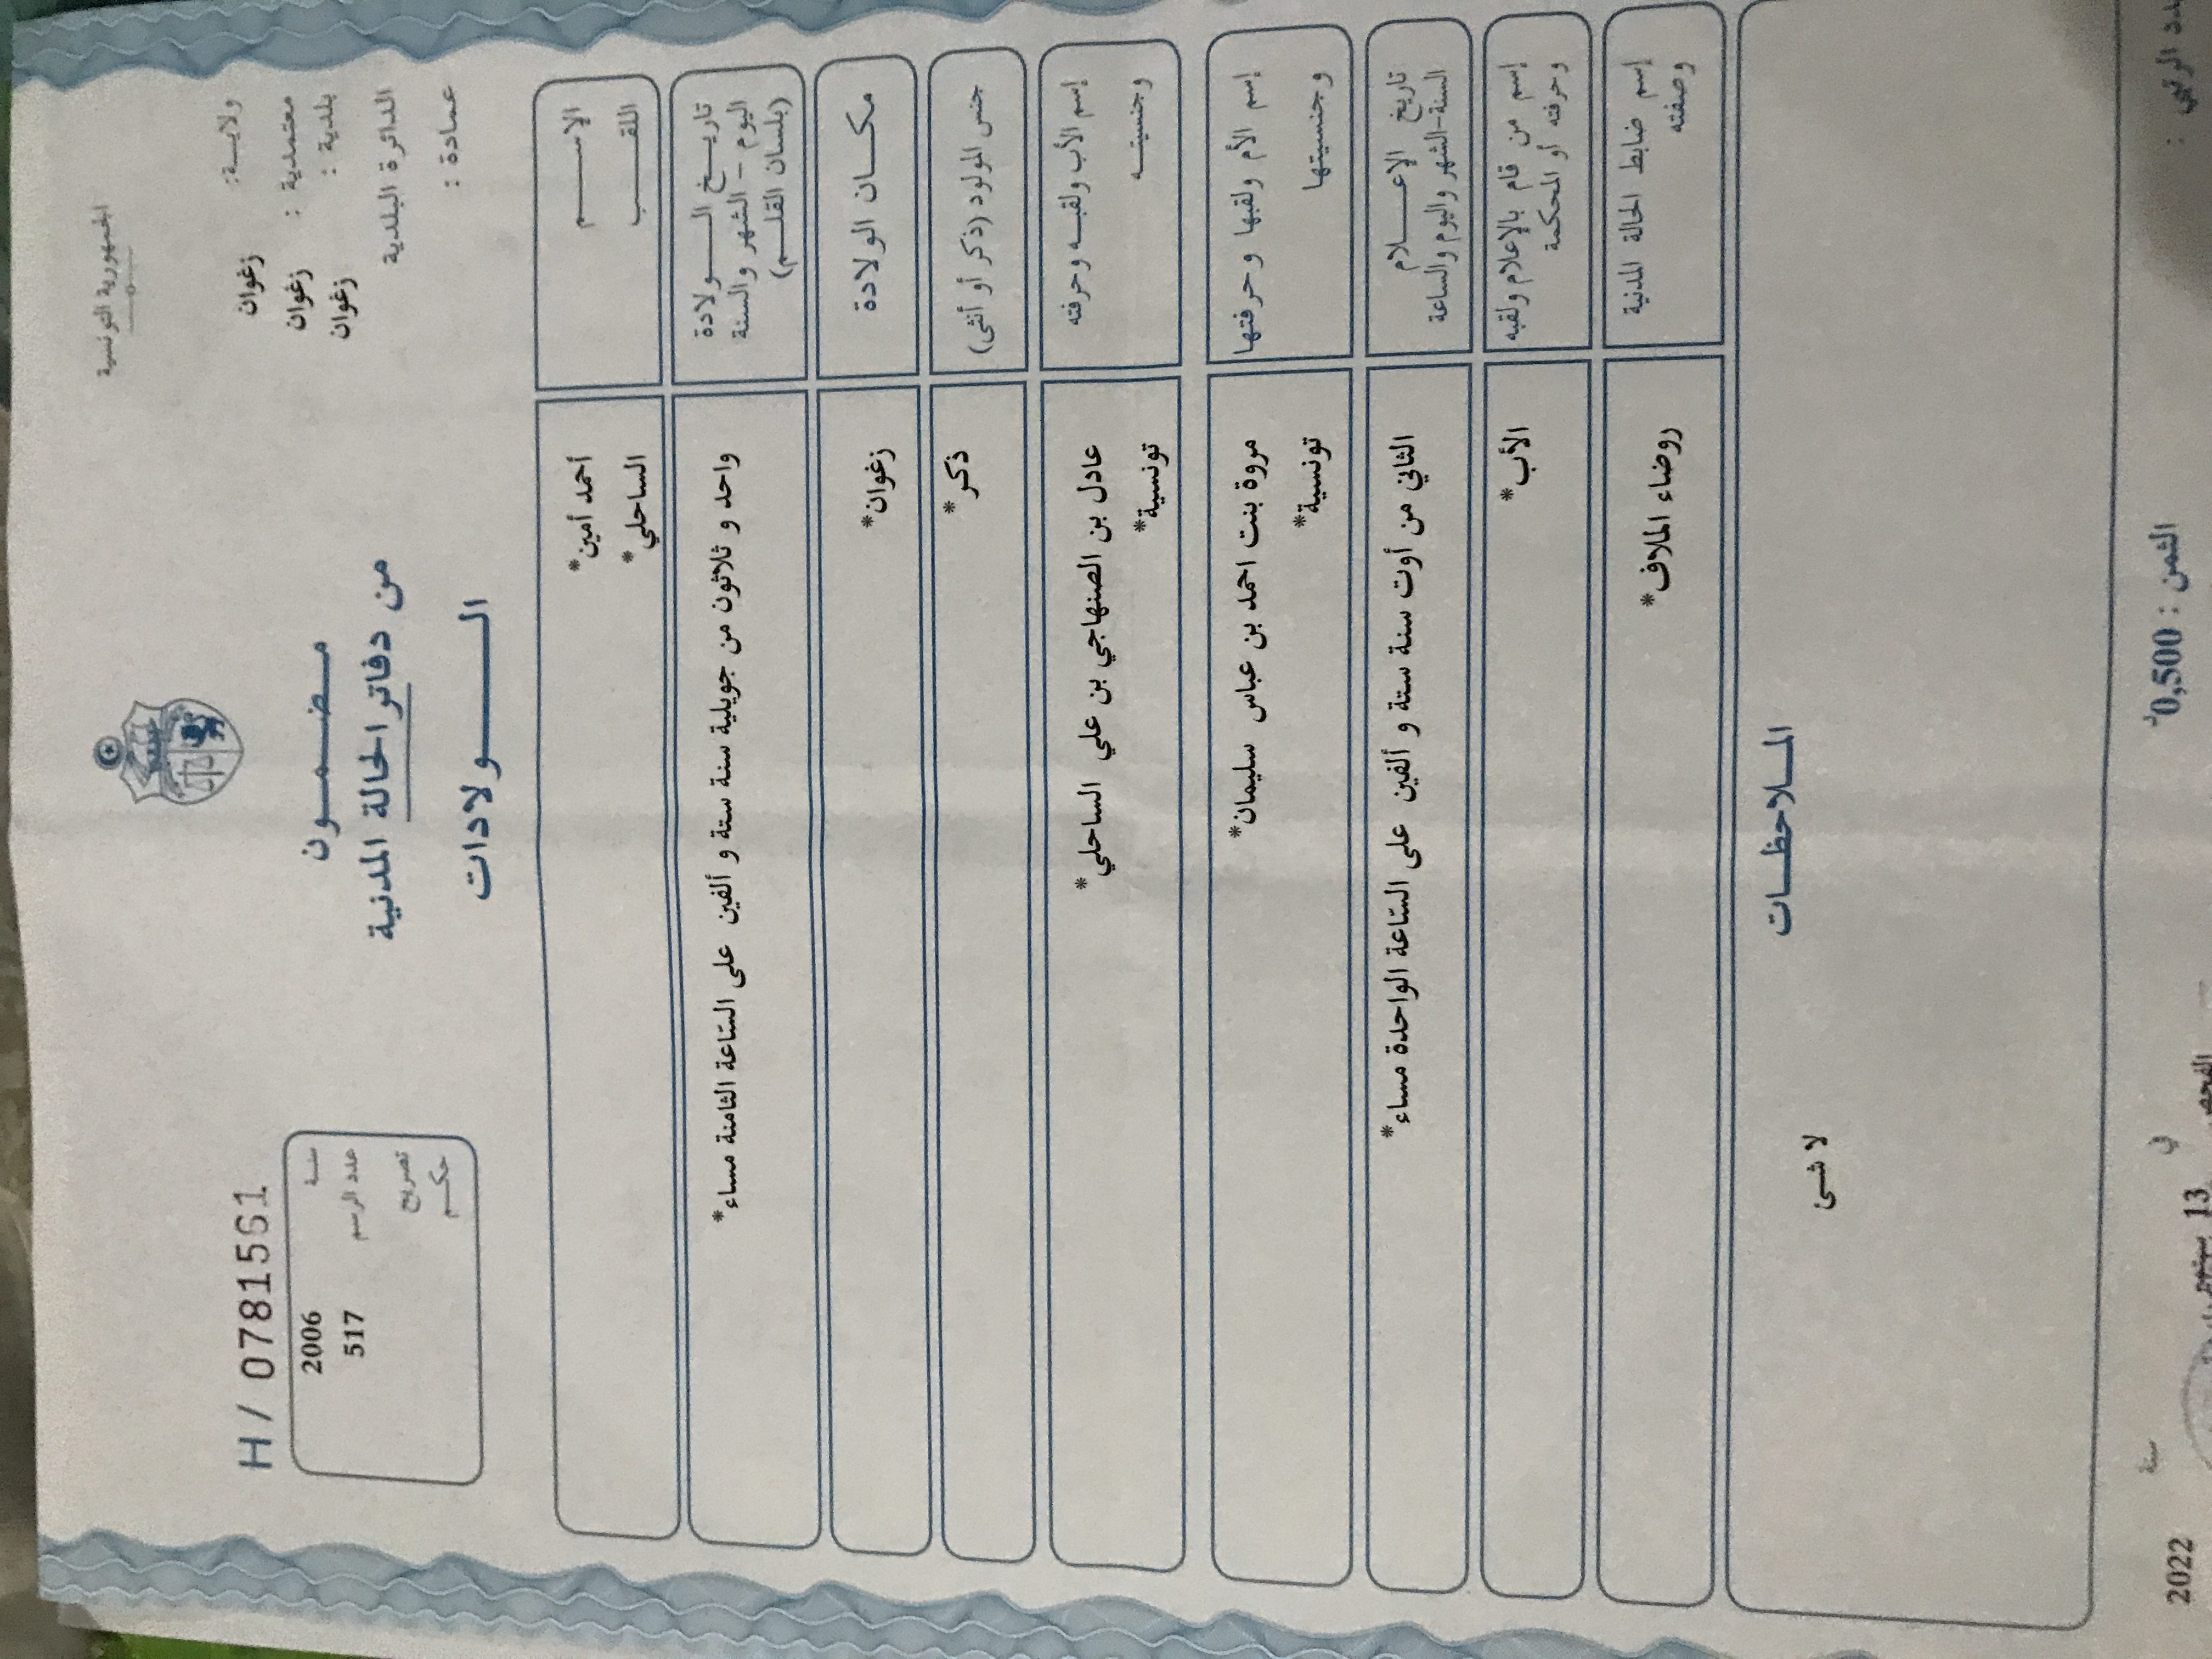 الجمهورية التونسية
ولايــة: زغوان
معتمدية : زغوان
بلدية : زغوان
الدائرة البلدية
عمادة :
مـضـمـــون
من دفاتر الحالة المدنية
الـــــولادات
H / 0781561
سنة 2006
عدد الرسم 517
تصريح
حكـم
الإســـــم أحمد أمين*
اللقـــب الساحلي*
تاريـــخ الـــــولادة
اليوم – الشهر والسنة
(بلسان القلـــم)
واحد و ثلاثون من جويلية سنة ستة و ألفين على السّاعة الثامنة مساء*
مكـــان الولادة زغوان*
جنس المولود (ذكر أو أنثى) ذكر*
إسم الأب ولقبـه وحرفته عادل بن الصنهاجي بن علي الساحلي*
وجنسيتـــه تونسية*
إسم الأم ولقبها وحرفتها مروة بنت احمد بن عباس سليمان*
وجنسيتها تونسية*
تاريخ الإعـــلام
السنة-الشهر واليوم والساعة
الثاني من أوت سنة ستة و ألفين على السّاعة الواحدة مساء*
إسم من قام بالإعلام ولقبه
وحرفته أو المحكمة
الأب*
إسم ضابط الحالة المدنية
وصفته
روضاء الملاف*
المــلاحظــات
لا شئ
الرقمي :
الثمن : 0,500د
في 13
سنة 2022